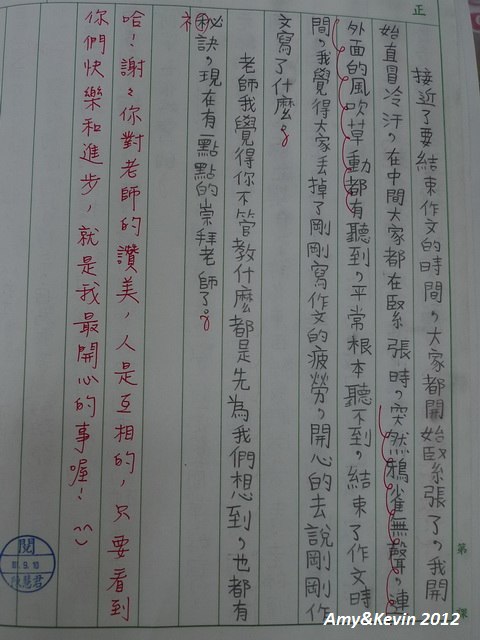 正
接近了要結束作文的時間，大家都開始緊張了，我開
始直冒冷汗，在中間大家都在緊張時，突然鴉雀無聲，連
外面的風吹草動都有聽到，平常根本聽不到，結束了作文時
間，我覺得大家丟掉了剛剛寫作文的疲勞，開心的去說剛剛作
文寫了什麼。
老師我覺得你不管教什麼都是先為我們想到，也都有
秘訣，現在有一點點的崇拜老師了。
祕
哈！謝々你對老師的讚美，人是互相的，只要看到
你們快樂和進步，就是我最開心的事喔！^^
第 課
閱
101.9.10
陳慧君
Amy&Kevin 2012